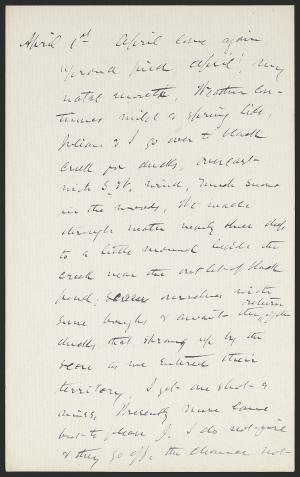 April 1st April come again,
"proud pied April", my
natal month. Weather con-
tinues mild & spring like,
Julian & I go over to black
creek for ducks, overcast
with S.W. wind, much snow
in the woods. We made
through water nearly knee deep
to a little mound beside the
creek near the outlet of black
pond, screen ourselves with
some boughs & await the return of the
ducks that sprang up by the
score as we entered their
territory. I get one shot &
miss. Presently more came
but to please J. I do not fire
& they go off, the chances not